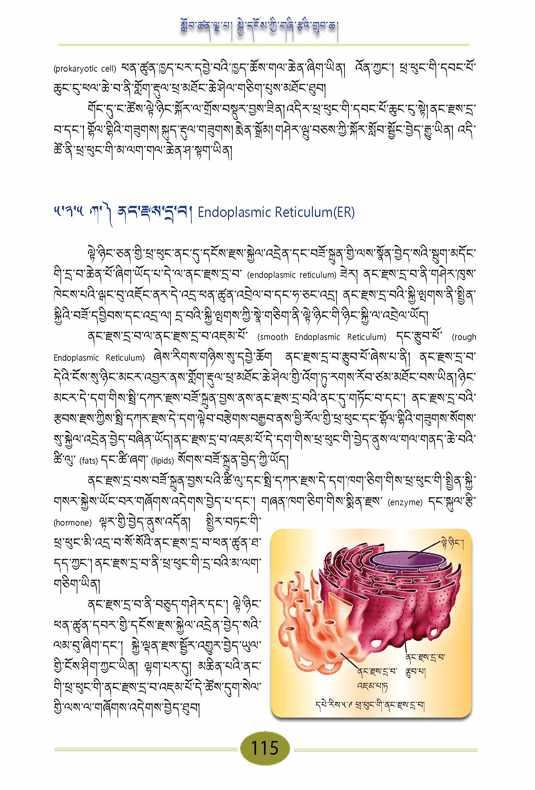 སློབ་ཚན་ལྔ་པ། སྐྱེ་དངོས་ཀྱི་གཞི་རྩའི་གྲུབ་ཆ།
(prokaryotic cell) ཕན་ཚུན་ཁྱད་པར་དབྱེ་བའི་ཁྱད་ཆོས་གལ་ཆེན་ཞིག་ཡིན། འོན་ཀྱང་། ཕྲ་ཕུང་གི་དབང་པོ་
ཆུང་དུ་ཕལ་ཆེ་བ་ནི་གློག་རྡུལ་ཕྲ་མཐོང་ཆེ་ཤེལ་གཅིག་པུས་མཐོང་ཐུབ།
གོང་དུ་ང་ཚོས་ལྟེ་ཉིང་སྐོར་ལ་གྲོས་བསྡུར་བྱས་ཟིན། འདིར་ཕྲ་ཕུང་གི་དབང་པོ་ཆུང་དུ་སྟེ། ནང་རྫས་དྲ་
བ་དང་། སྒོལ་སྒིའི་གཟུགས། སྐུད་རྡུལ་གཟུགས། རྨེན་སྒྲོམ། གཤེར་ལྦུ་བཅས་ཀྱི་སྐོར་སློབ་སྦྱོང་བྱེད་རྒྱུ་ཡིན། འདི་
ཚོ་ནི་ཕྲ་ཕུང་གི་མ་ལག་གལ་ཆེན་ཤ་སྟག་ཡིན།
༥.༢.༥ ཀ༽ ནང་རྫས་དྲ་བ། Endoplasmic Reticulum(ER)
ལྟེ་ཉིང་ཅན་གྱི་ཕྲ་ཕུང་ནང་དུ་དངོས་རྫས་སྐྱེལ་འདྲེན་དང་བཟོ་སྐྲུན་གྱི་ལས་སྣོན་བྱེད་སའི་སྦུག་མདོང་
གི་དྲ་བ་ཆེན་པོ་ཞིག་ཡོད་པ་དེ་ལ་ནང་རྫས་དྲ་བ་ (endoplasmic reticulum) ཟེར། ནང་རྫས་དྲ་བ་ནི་གཤེར་ཁུས་
ཁེངས་པའི་ལྦང་བུ་འཇོང་ནར་དེ་འདྲ་ཕན་ཚུན་འབྲེལ་བ་དང་ཧ་ཅང་འདྲ། ནང་རྫས་དྲ་བའི་སྐྱི་ལྤགས་ནི་སྤྲིན་
སྐྱིའི་བཟོ་དབྱིབས་དང་འདྲ་ལ། དྲ་བའི་སྐྱི་ལྤགས་ཀྱི་སྣེ་གཅིག་ནི་ལྟེ་ཉིང་གི་ཉིང་སྐྱི་ལ་འབྲེལ་ཡོད།
ནང་རྫས་དྲ་བ་ལ་ནང་རྫས་དྲ་བ་འཇམ་པོ་ (smooth Endoplasmic Reticulum) དང་རྩུབ་པོ་ (rough
Endoplasmic Reticulum) ཞེས་རིགས་གཉིས་སུ་དབྱེ་ཆོག ནང་རྫས་དྲ་བ་རྩུབ་པོ་ཞེས་པ་ནི། ནང་རྫས་དྲ་བ་
དེའི་ངོས་སུ་ཉིང་མངར་འབྱར་ནས་གློག་རྡུལ་ཕྲ་མཐོང་ཆེ་ཤེལ་གྱི་འོག་ཏུ་རགས་རོབ་ཙམ་མཐོང་བས་ཡིན། ཉིང་
མངར་དེ་དག་གིས་སྤྲི་དཀར་རྫས་བཟོ་སྐྲུན་བྱས་ནས་ནང་རྫས་དྲ་བའི་ནང་དུ་གཏོང་བ་དང་། ནང་རྫས་དྲ་བའི་
རྩབས་རྫས་ཀྱིས་སྤྲི་དཀར་རྫས་དེ་དག་ལྟེབ་བརྩེགས་བརྒྱབ་ནས་ཕྱི་རོལ་གྱི་ཕྲ་ཕུང་དང་སྒོལ་སྒིའི་གཟུགས་སོགས་
སུ་སྐྱེལ་འདྲེན་བྱེད་བཞིན་ཡོད། ནང་རྫས་དྲ་བ་འཇམ་པོ་དེ་དག་གིས་ཕྲ་ཕུང་གི་བྱེད་ནུས་ལ་གལ་གནད་ཆེ་བའི་
ཚི་ལུ་ (fats) དང་ཚི་ཞག་ (lipids) སོགས་བཟོ་སྐྲུན་བྱེད་ཀྱི་ཡོད།
ནང་རྫས་དྲ་བས་བཟོ་སྐྲུན་བྱས་པའི་ཚི་ལུ་དང་སྤྲི་དཀར་རྫས་དེ་དག་ཁག་ཅིག་གིས་ཕྲ་ཕུང་གི་སྤྲིན་སྐྱི་
གསར་སྐྱེས་ཡོང་བར་གཞོགས་འདེགས་བྱེད་པ་དང་། གཞན་ཁག་ཅིག་གིས་སྨིན་རྫས་ (enzyme) དང་སྐུལ་རྩི་
(hormone) ལྟར་གྱི་བྱེད་ནུས་འདོན། སྤྱིར་བཏང་གི་
ཕྲ་ཕུང་མི་འདྲ་བ་སོ་སོའི་ནང་རྫས་དྲ་བ་ཕན་ཚུན་ཐ་
དད་ཀྱང་། ནང་རྫས་དྲ་བ་ནི་ཕྲ་ཕུང་གི་དྲ་བའི་མ་ལག་
གཅིག་ཡིན།
ནང་རྫས་དྲ་བ་ནི་བཅུད་གཤེར་དང་། ལྟེ་ཉིང་
ཕན་ཚུན་དབར་གྱི་དངོས་རྫས་སྐྱེལ་འདྲེན་བྱེད་སའི་
ལམ་བུ་ཞིག་དང་། སྐྱེ་ལྡན་རྫས་སྦྱོར་འགྱུར་བྱེད་ཡུལ་
གྱི་ངོས་ཤིག་ཀྱང་ཡིན། ལྷག་པར་དུ། མཆིན་པའི་ནང་
གི་ཕྲ་ཕུང་གི་ནང་རྫས་དྲ་བ་འཇམ་པོ་དེ་ཚོས་དུག་སེལ་
གྱི་ལས་ལ་གཞོགས་འདེགས་བྱེད་ཐུབ།
ལྟེ་ཉིང་།
ནང་རྫས་དྲ་བ་
རྩུབ་པ།
ནང་རྫས་དྲ་བ་
འཇམ་པ།
དཔེ་རིས་༥.༩ ཕྲ་ཕུང་གི་ནང་རྫས་དྲ་བ།
115